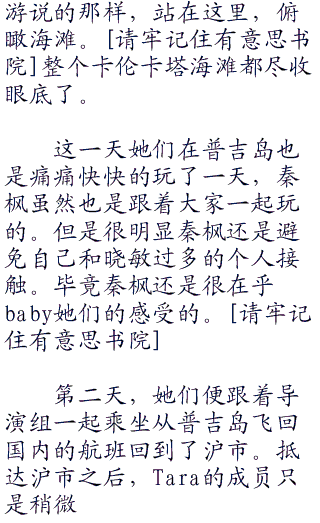 游说的那样，站在这里，俯
瞰海滩。[请牢记住有意思书
院]整个卡伦卡塔海滩都尽收
眼底了。
这一天她们在普吉岛也
是痛痛快快的玩了一天，秦
枫虽然也是跟着大家一起玩
的。但是很明显秦枫还是避
免自己和晓敏过多的个人接
触。毕竟秦枫还是很在乎
baby她们的感受的。[请牢记
住有意思书院]
第二天，她们便跟着导
演组一起乘坐从普吉岛飞回
国内的航班回到了沪市。抵
达沪市之后，Tara的成员只
是稍微